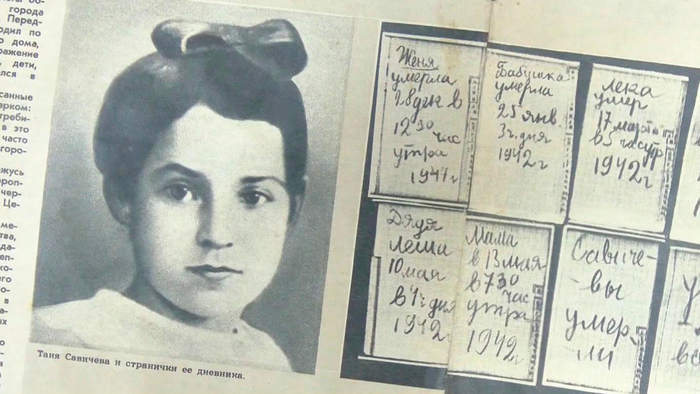 города
Перед-
одил по
о дома,
ражение
дети,
елся в
исанные
арком:
в это
часто
горо-
жусь
ероп-
чер-
Це-
ме-
тва,
да-
еп-
ко-
ого
о-
в
а-
ых
Таня Савичева и странички ее дневника.
Женя
умерла
28 дек в
12 30 час
утра
1941 г
Бабушка
умерла
25 янв.
3 ч. дня
1942 г
Лека
умер
17 марта
в 5 час утр
1942 г
Дядя
Леша
10 мая
в 4 ч дня
1942 г
Мама
в 13 мая
в 7 30 час
утра
1942 г
Савиче-
-вы
умер
ли